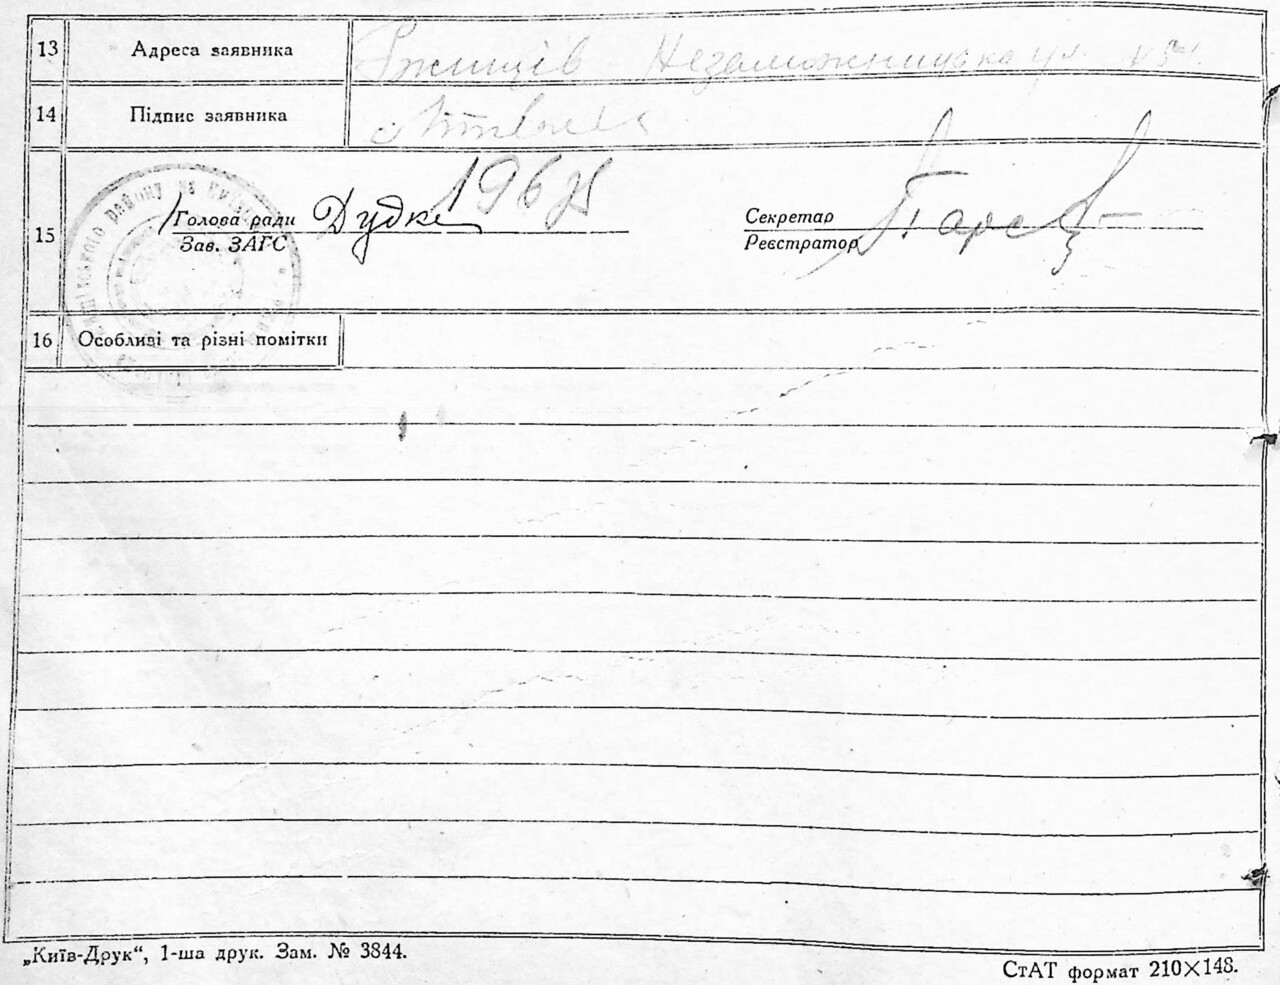 13 Адреса заявника Ржищів Незаможницька ул.
14 Підпис заявника
району на Київ
15 Голова ради Дудка 196
Зав. ЗАГС
Секретар
Реєстратор
16 Особливі та різні помітки
„Київ-Друк“, 1-ша друк. Зам. № 3844.
СтАТ формат 210×148.